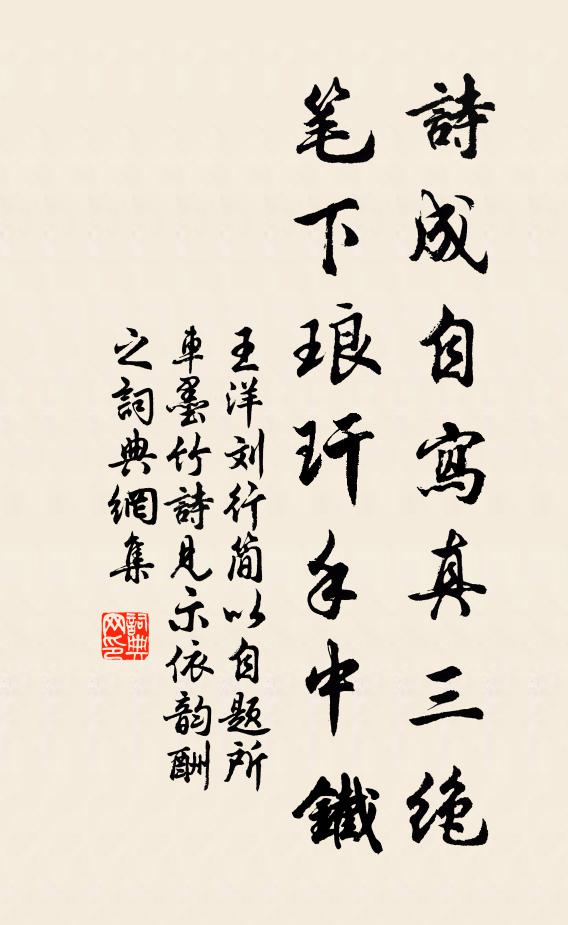 詩成自寫真三绝
笔下琅玕手中鐵
王洋刘行简以自题所
車墨竹詩見示依韵酬
之詞典網集
詞典网印